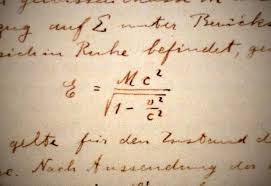 auf Σ unter Berück
sich in Ruhe befindet, ge
E = Mc² / √(1 - v²/c²)
gelte für den Zustand d
e. Nach Aussendung der